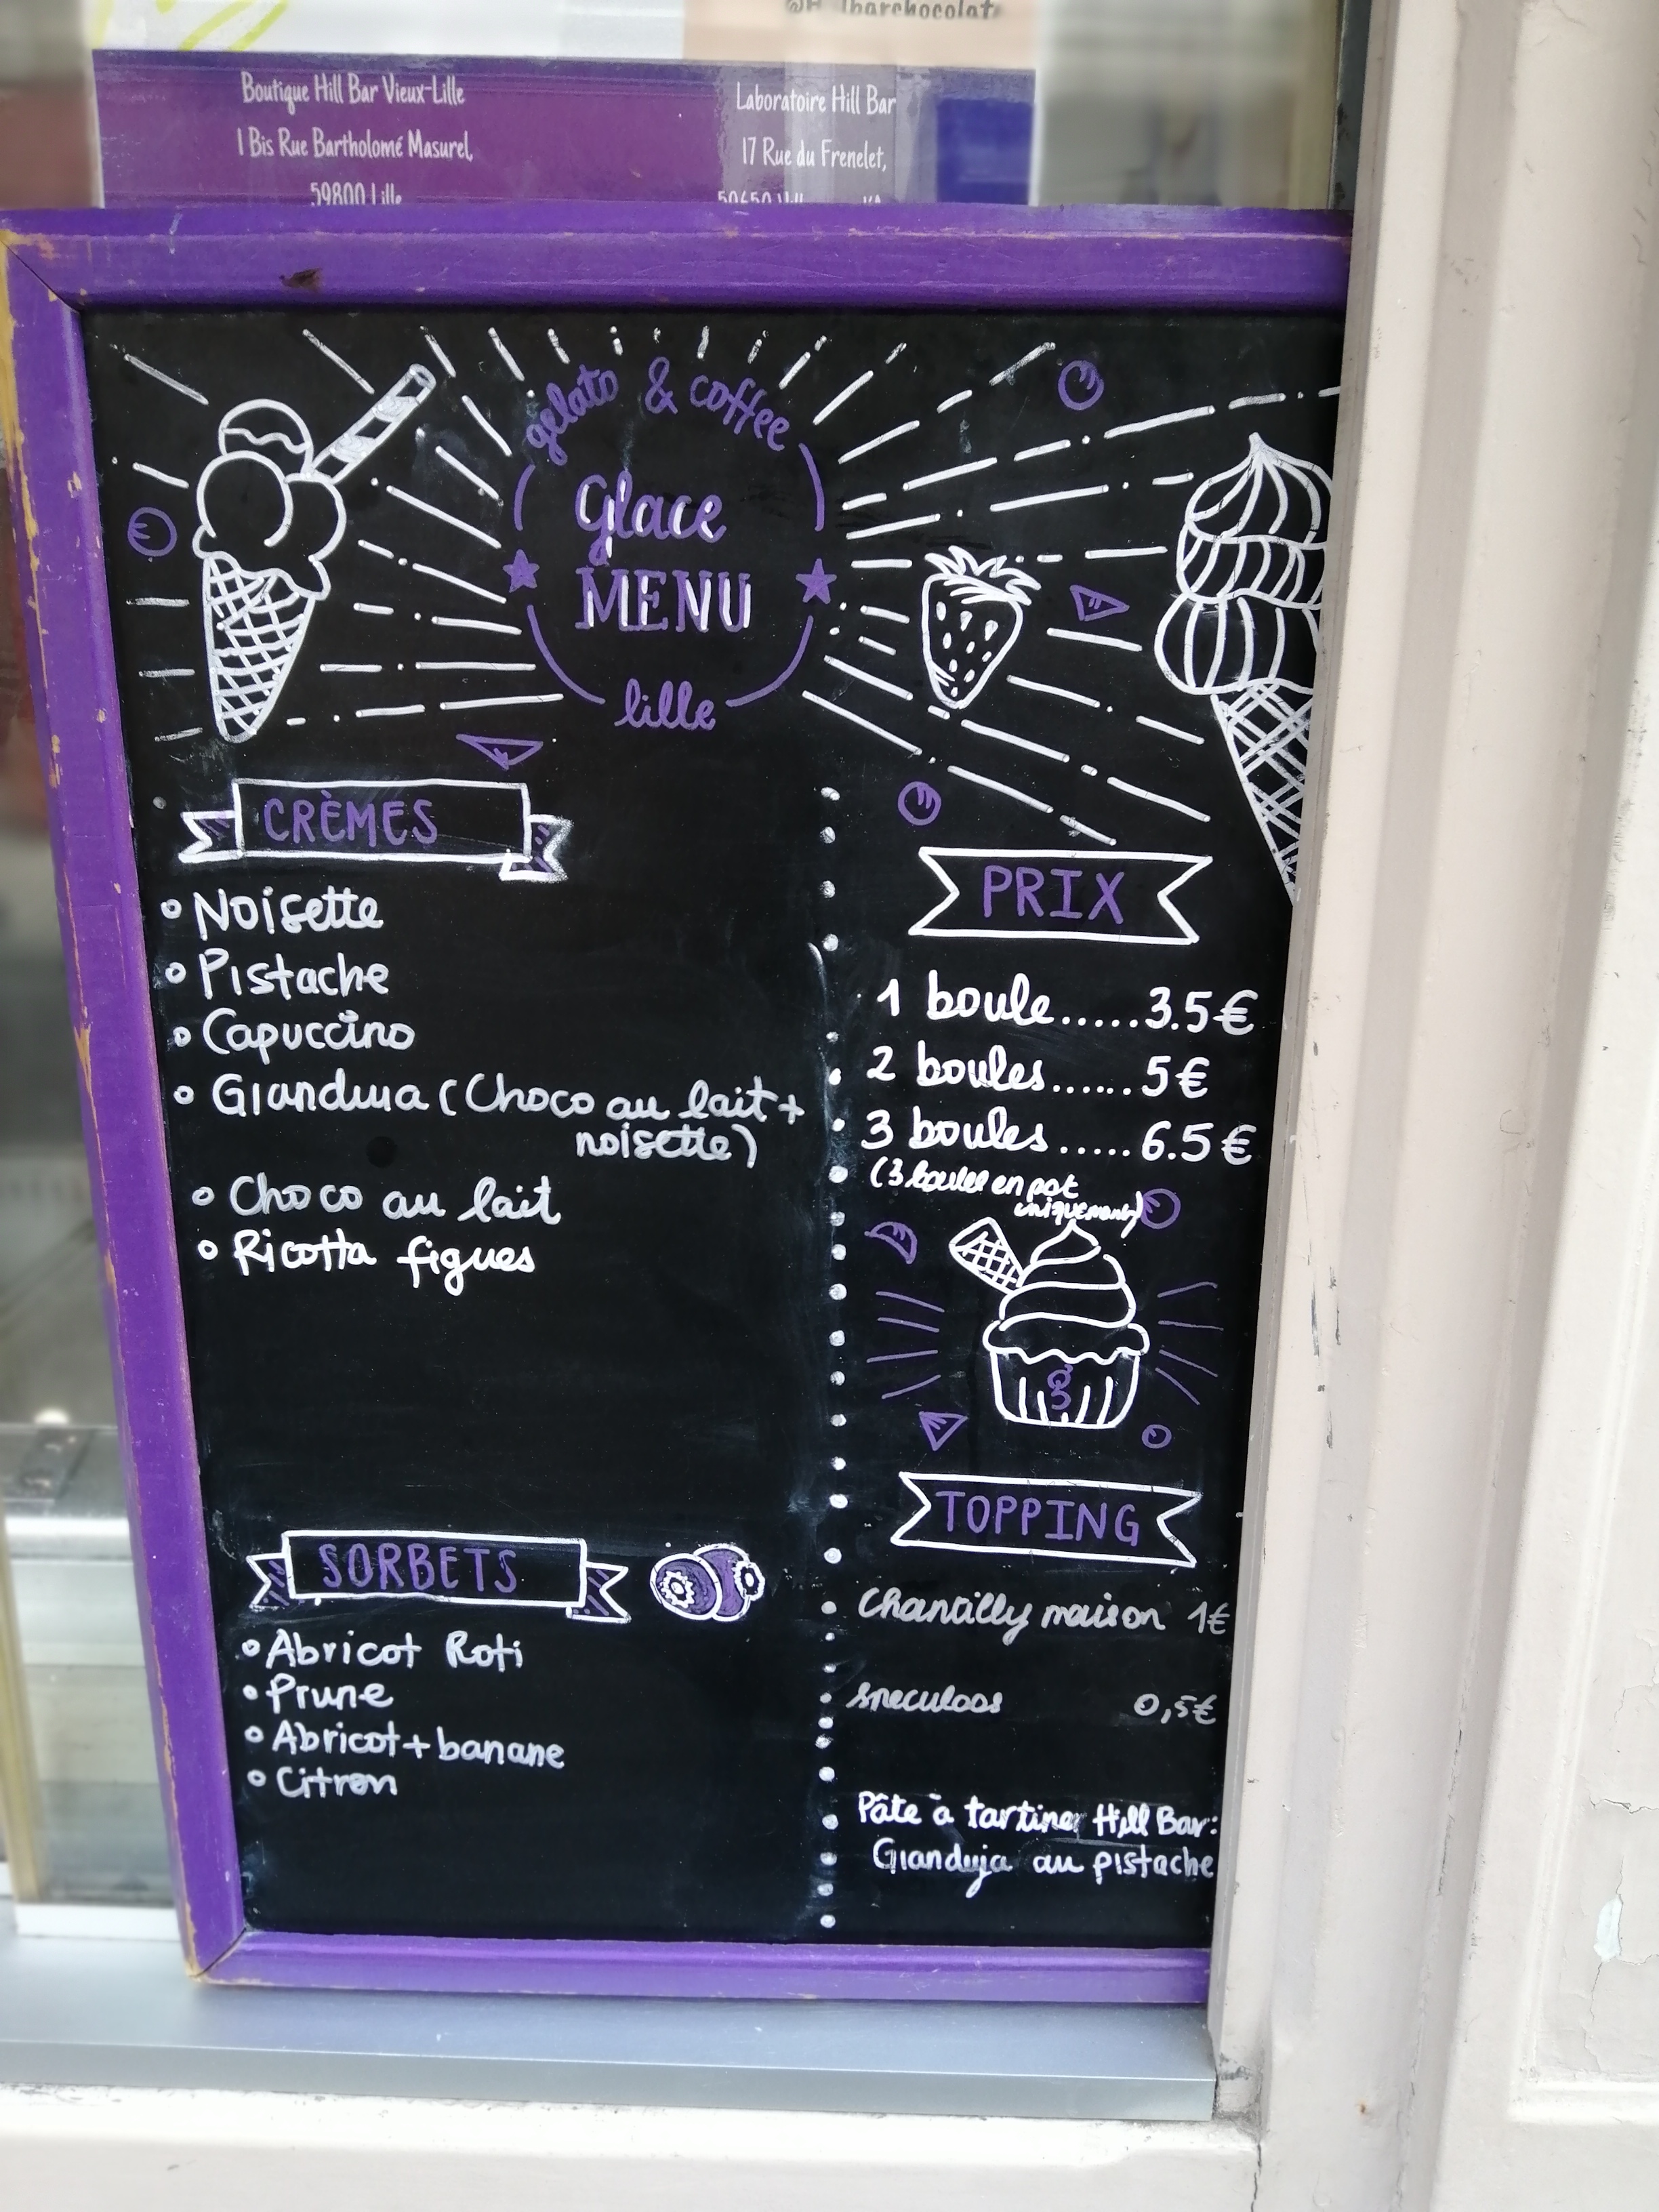 Boutique Hill Bar Vieux-Lille
1 Bis Rue Bartholomé Masurel,
59800 Lille
Laboratoire Hill Bar
17 Rue du Frenelet,
gelato & coffee
Glace
MENU
lille
CRÈMES
Noisette
Pistache
Capuccino
Gianduia (Choco au lait +
noisette)
Choco au lait
Ricotta figues
SORBETS
Abricot Roti
Prune
Abricot + banane
Citron
PRIX
1 boule.....3.5€
2 boules......5€
3 boules.....6.5€
(3 boules en pot
uniquement)
TOPPING
Chantilly maison 1€
speculoos 0,5€
Pâte à tartiner Hill Bar:
Gianduja au pistache